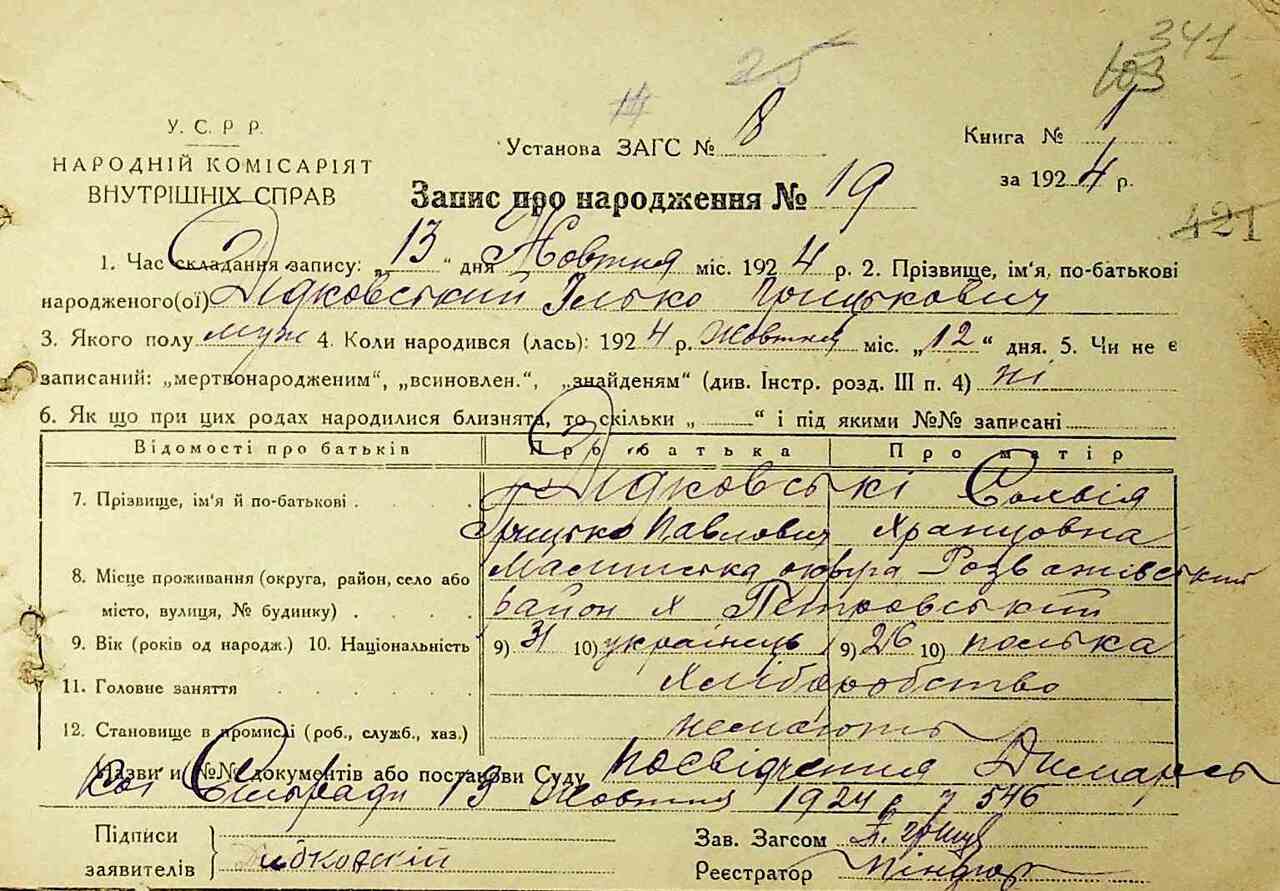 341
103
25
У. С. Р. Р.
НАРОДНІЙ КОМІСАРІЯТ
ВНУТРІШНІХ СПРАВ
Установа ЗАГС № 8
Книга № 1
за 1924 р.
Запис про народження № 19
421
1. Час складання запису: „13“ дня Жовтня міс. 1924 р. 2. Прізвище, ім'я, по-батькові
народженого(ої) Дідковський Ілько Грицькович
3. Якого полу муж 4. Коли народився (лась): 1924 р. Жовтня міс. „12“ дня. 5. Чи не є
записаний: „мертвонародженим“, „всиновлен.“, „знайденям“ (див. Інстр. розд. III п. 4) ні
6. Як що при цих родах народилися близнята, то скільки „ “ і під якими №№ записані
Відомості про батьків Про батька Про матір
7. Прізвище, ім'я й по-батькові Дідковські Софія
Грицько Павлович Хранцовна
8. Місце проживання (округа, район, село або Малинська округа Розважівський
місто, вулиця, № будинку) район х Петровський
9. Вік (років од народж.) 10. Національність 9) 31 10) українець 9) 26 10) полька
11. Головне заняття Хліборобство
12. Становище в промислі (роб., служб., хаз.) немають
Назви и №№ документів або постанови Суду посвідчення Димарсь
кої Сільради 13 Жовтня 1924 р № 546
Підписи
заявителів
Зав. Загсом
Реєстратор